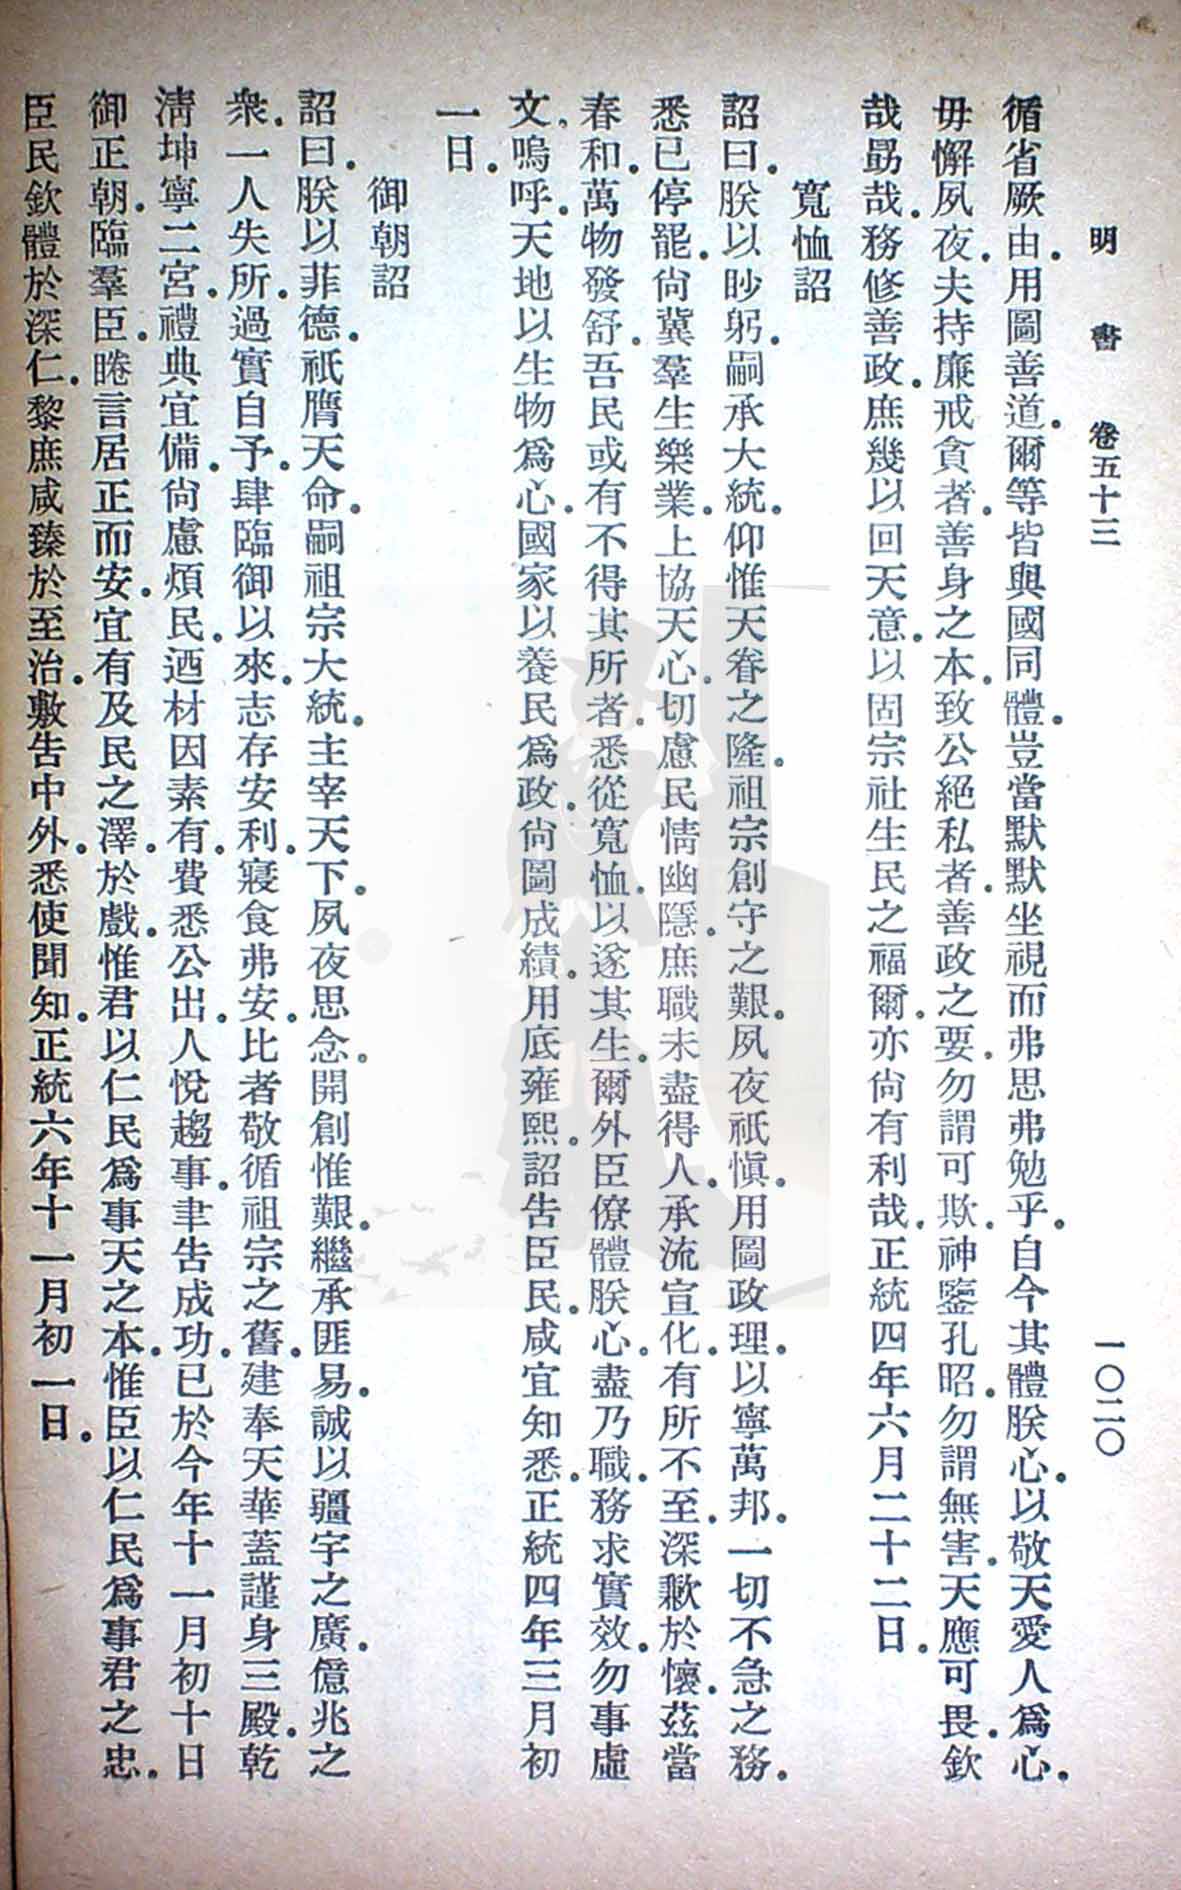 明書 卷五十三 一〇二〇
循省厥由。用圖善道。爾等皆與國同體。豈當默默坐視而弗思弗勉乎。自今其體朕心。以敬天愛人爲心。
毋懈夙夜。夫持廉戒貪者。善身之本。致公絕私者。善政之要。勿謂可欺。神鑒孔昭。勿謂無害。天應可畏。欽
哉勗哉。務修善政。庶幾以回天意。以固宗社生民之福。爾亦尙有利哉。正統四年六月二十二日。
寬恤詔
詔曰。朕以眇躬。嗣承大統。仰惟天眷之隆。祖宗創守之艱。夙夜祇愼。用圖政理。以寧萬邦。一切不急之務。
悉已停罷。尙冀羣生樂業。上協天心。切慮民情幽隱。庶職未盡得人。承流宣化。有所不至。深歉於懷。茲當
春和。萬物發舒。吾民或有不得其所者。悉從寬恤。以遂其生。爾外臣僚體朕心。盡乃職。務求實效。勿事虛
文。嗚呼。天地以生物爲心。國家以養民爲政。尙圖成績。用底雍熙。詔告臣民。咸宜知悉。正統四年三月初
一日。
御朝詔
詔曰。朕以菲德。祇膺天命。嗣祖宗大統。主宰天下。夙夜思念。開創惟艱。繼承匪易。誠以疆宇之廣。億兆之
衆。一人失所。過實自予。肆臨御以來。志存安利。寢食弗安。比者敬循祖宗之舊。建奉天華蓋謹身三殿。乾
淸坤寧二宮。禮典宜備。尙慮煩民。迺材因素有。費悉公出。人悅趨事。聿告成功。已於今年十一月初十日
御正朝。臨羣臣。睠言居正而安。宜有及民之澤。於戲。惟君以仁民爲事天之本。惟臣以仁民爲事君之忠。
臣民欽體於深仁。黎庶咸臻於至治。敷告中外。悉使聞知。正統六年十一月初一日。